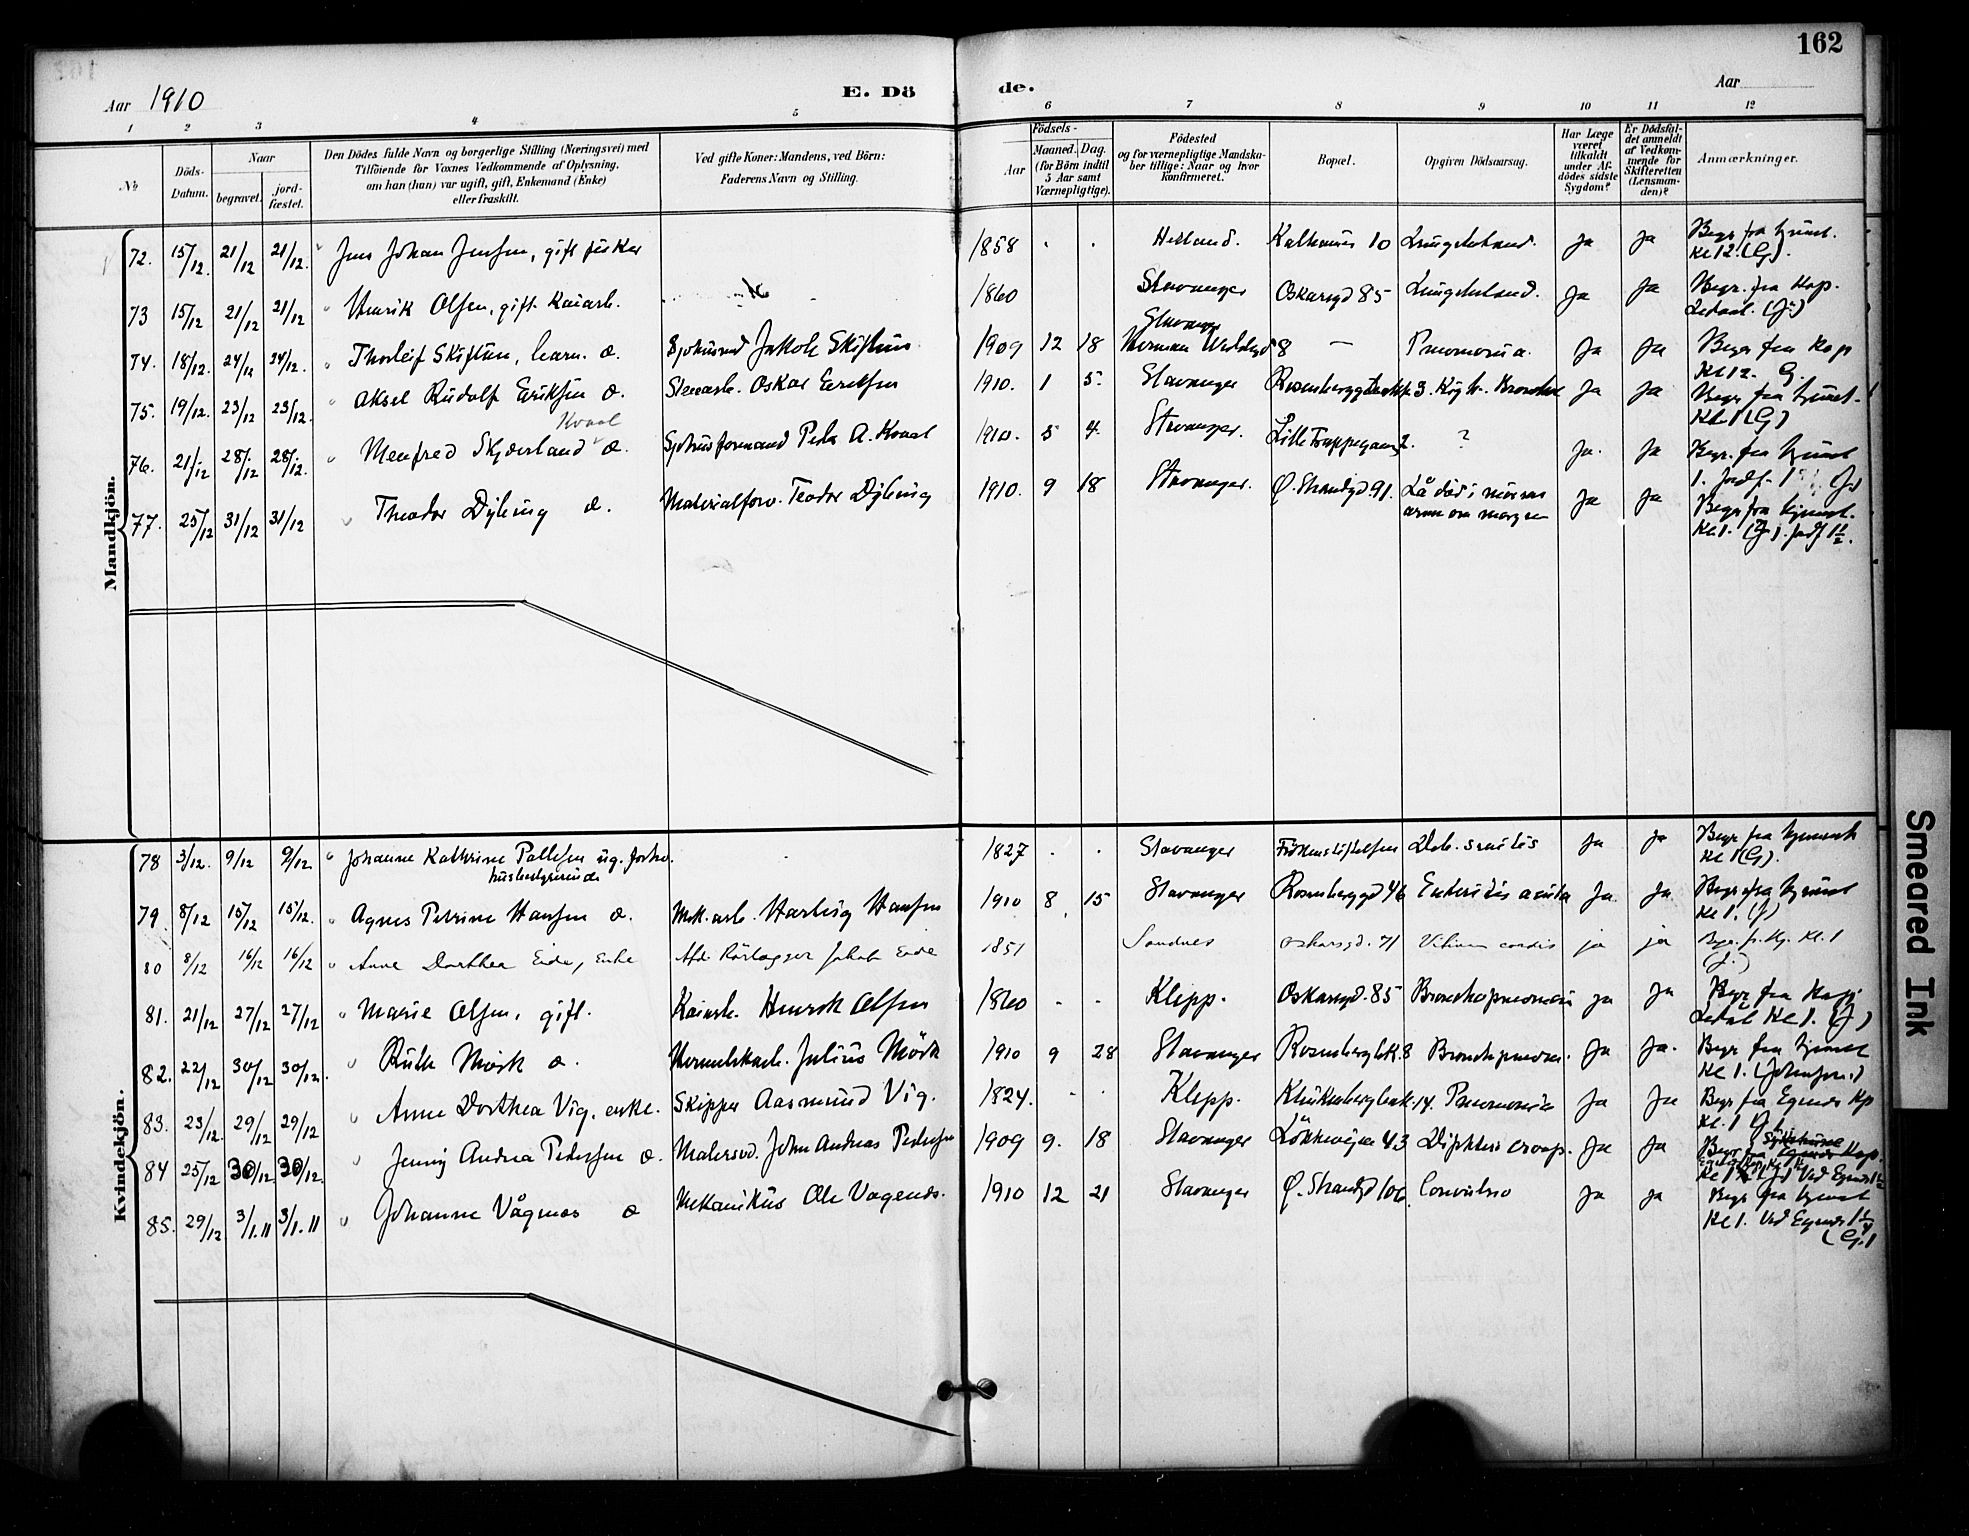 162
Aar 1910
E. Dö
de.
Aar
1 2 3 4 5 6 7 8 9 10 11 12
No
Döds-Datum.
Naar
begravet.
jord-fæstet.
Den Dödes fulde Navn og borgerlige Stilling (Næringsvei) med
Tilföiende for Voxnes Vedkommende af Oplysning,
om han (hun) var ugift, gift, Enkemand (Enke)
eller fraskilt.
Ved gifte Koner: Mandens, ved Börn:
Faderens Navn og Stilling.
Födsels-
Aar
Maaned. Dag.
(for Börn indtil
5 Aar samt
Værnepligtige).
Födested
og for værnepligtige Mandska-
ber tillige: Naar og hvor
konfirmeret.
Bopæl.
Opgiven Dödsaarsag.
Har Læge
været
tilkaldt
under Af-
dödes sidste
Sygdom?
Er Dödsfal-
det anmeldt
af Vedkom-
mende for
Skifteretten
(Lensman-
den)?
Anmærkninger.
Mandkjön.
72. 15/12. 21/12 21/12. Jens Johan Jensen, gift fisker 1858 . . Helland. Kalhammer 10 Lungebetænd. ja ja Begr. fra hjemmet. Kl 12. (G).
73 15/12 21/12 21/12 Henrik Olsen, gift. Kaiarb. 1860 Stavanger Oskarsgd 85 Lungebetænd. Ja Ja Begr. fra Kap. Ledaal. (J.)
74. 18/12. 24/12 24/12. Thorleif Skiftun, barn. d. Sjohusmd Jakob Skiftun 1909 12 18 Stavanger 8 — Pneumonia. Ja Ja Begr fra Kap Kl 12. G.
75. 19/12. 23/12 23/12. Aksel Rudolf Eriksen d. Stenarb. Oskar Eriksen 1910. 1 5. Stavanger Ja Ja Begr fra hjemmet. Kl 1 (G)
Kvaal
76. 21/12 28/12 28/12. Menfred Skjæveland d. Sjohusformand Peder A. Kvaal 1910. 5 4. Stavanger. Lille Trappegang 2. ? Ja. Ja Begr. fra hjemmet
77. 25/12 31/12 31/12 Theodor Dybing d. Materialforv. Teodor Dybing 1910. 9 18 Stavanger. Ø. Strandgd 91. Lå død i mors arme om morgen Ja Ja Begr fra hjemmet. Kl 1. (J). Jrdf 1 1/2.
Kvindekjön.
78 3/12. 9/12 9/12 Johanne Kathrine Pallesen ug. forhv. husbestyrerinde 1827 . . Stavanger Frökenstiftelsen Deb. senilis Ja ja Begr fra hjemmet Kl 1 (G).
79. 8/12 15/12 15/12. Agnes Petrine Hansen d. Mek. arb. Hartvig Hansen 1910 8 15 Stavanger Rosenberggd 46 Enteritis acuta Ja. Ja Begr fra hjemmet Kl 1. (J)
80 8/12 16/12 16/12 Anne Dorthea Eide, Enke Afd. Rörlægger Jakob Eide 1851 Sandnes Oskarsgd. 71 Vitium cordis ja ja Begr. fr. Hj. Kl. 1 (J.)
81. 21/12 27/12 27/12 Marie Olsen, gift. Kaiarb. Henrik Olsen 1860 . . Klepp. Oskarsgd. 85 Bronchopneumoni ja ja Begr fra Kap Ledål Kl 1. (J)
82. 22/12 30/12 30/12. Ruth Mörk d. Hermetikarb. Julius Mörk 1910 9 28 Stavanger Rosenbergbk. 8 Bronchpneum. Ja Ja. Begr fra hjemmet Kl 1. (Johnsen.)
83. 23/12. 29/12 29/12 Anne Dorthea Vig. enke. Skipper Aasmund Vig. 1824. . . Klepp. 14. Pneumonia Ja Ja Begr fra Egenes Kp Kl. 1 G.
84 25/12 30/12 30/12. Jenny Andrea Pedersen d. Malersvd. John Andreas Pedersen 1909 9. 18 Stavanger Lökkeveien 43 Diphteri croup. Ja Ja Begr fra Sykehusets Kap.
85. 29/12 3/1.11 3/1.11 Johanne Vågenes d Mekanikus Ole Vagenes. 1910 12 21 Stavanger Ø. Strandgd 106. Convulsio Ja ja Begr fra hjemmet Kl 1. Ved Egenes 1 1/4 (G.)
Smeared Ink